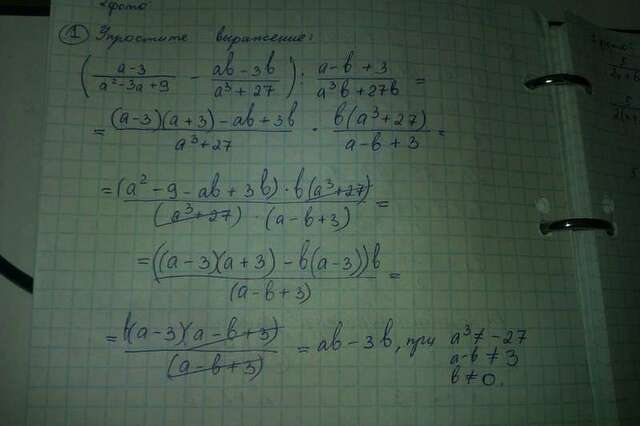 фото
① Упростите выражение:
((a-3)/(a²-3a+9) - (ab-3b)/(a³+27)) : (a-b+3)/(a³b+27b) =
= ((a-3)(a+3)-ab+3b)/(a³+27) · (b(a³+27))/(a-b+3) =
= ((a²-9-ab+3b)·b(a³+27))/((a³+27)·(a-b+3)) =
= (((a-3)(a+3)-b(a-3))b)/((a-b+3)) =
= (b(a-3)(a-b+3))/((a-b+3)) = ab-3b, при a³≠-27
a-b≠3
b≠0.